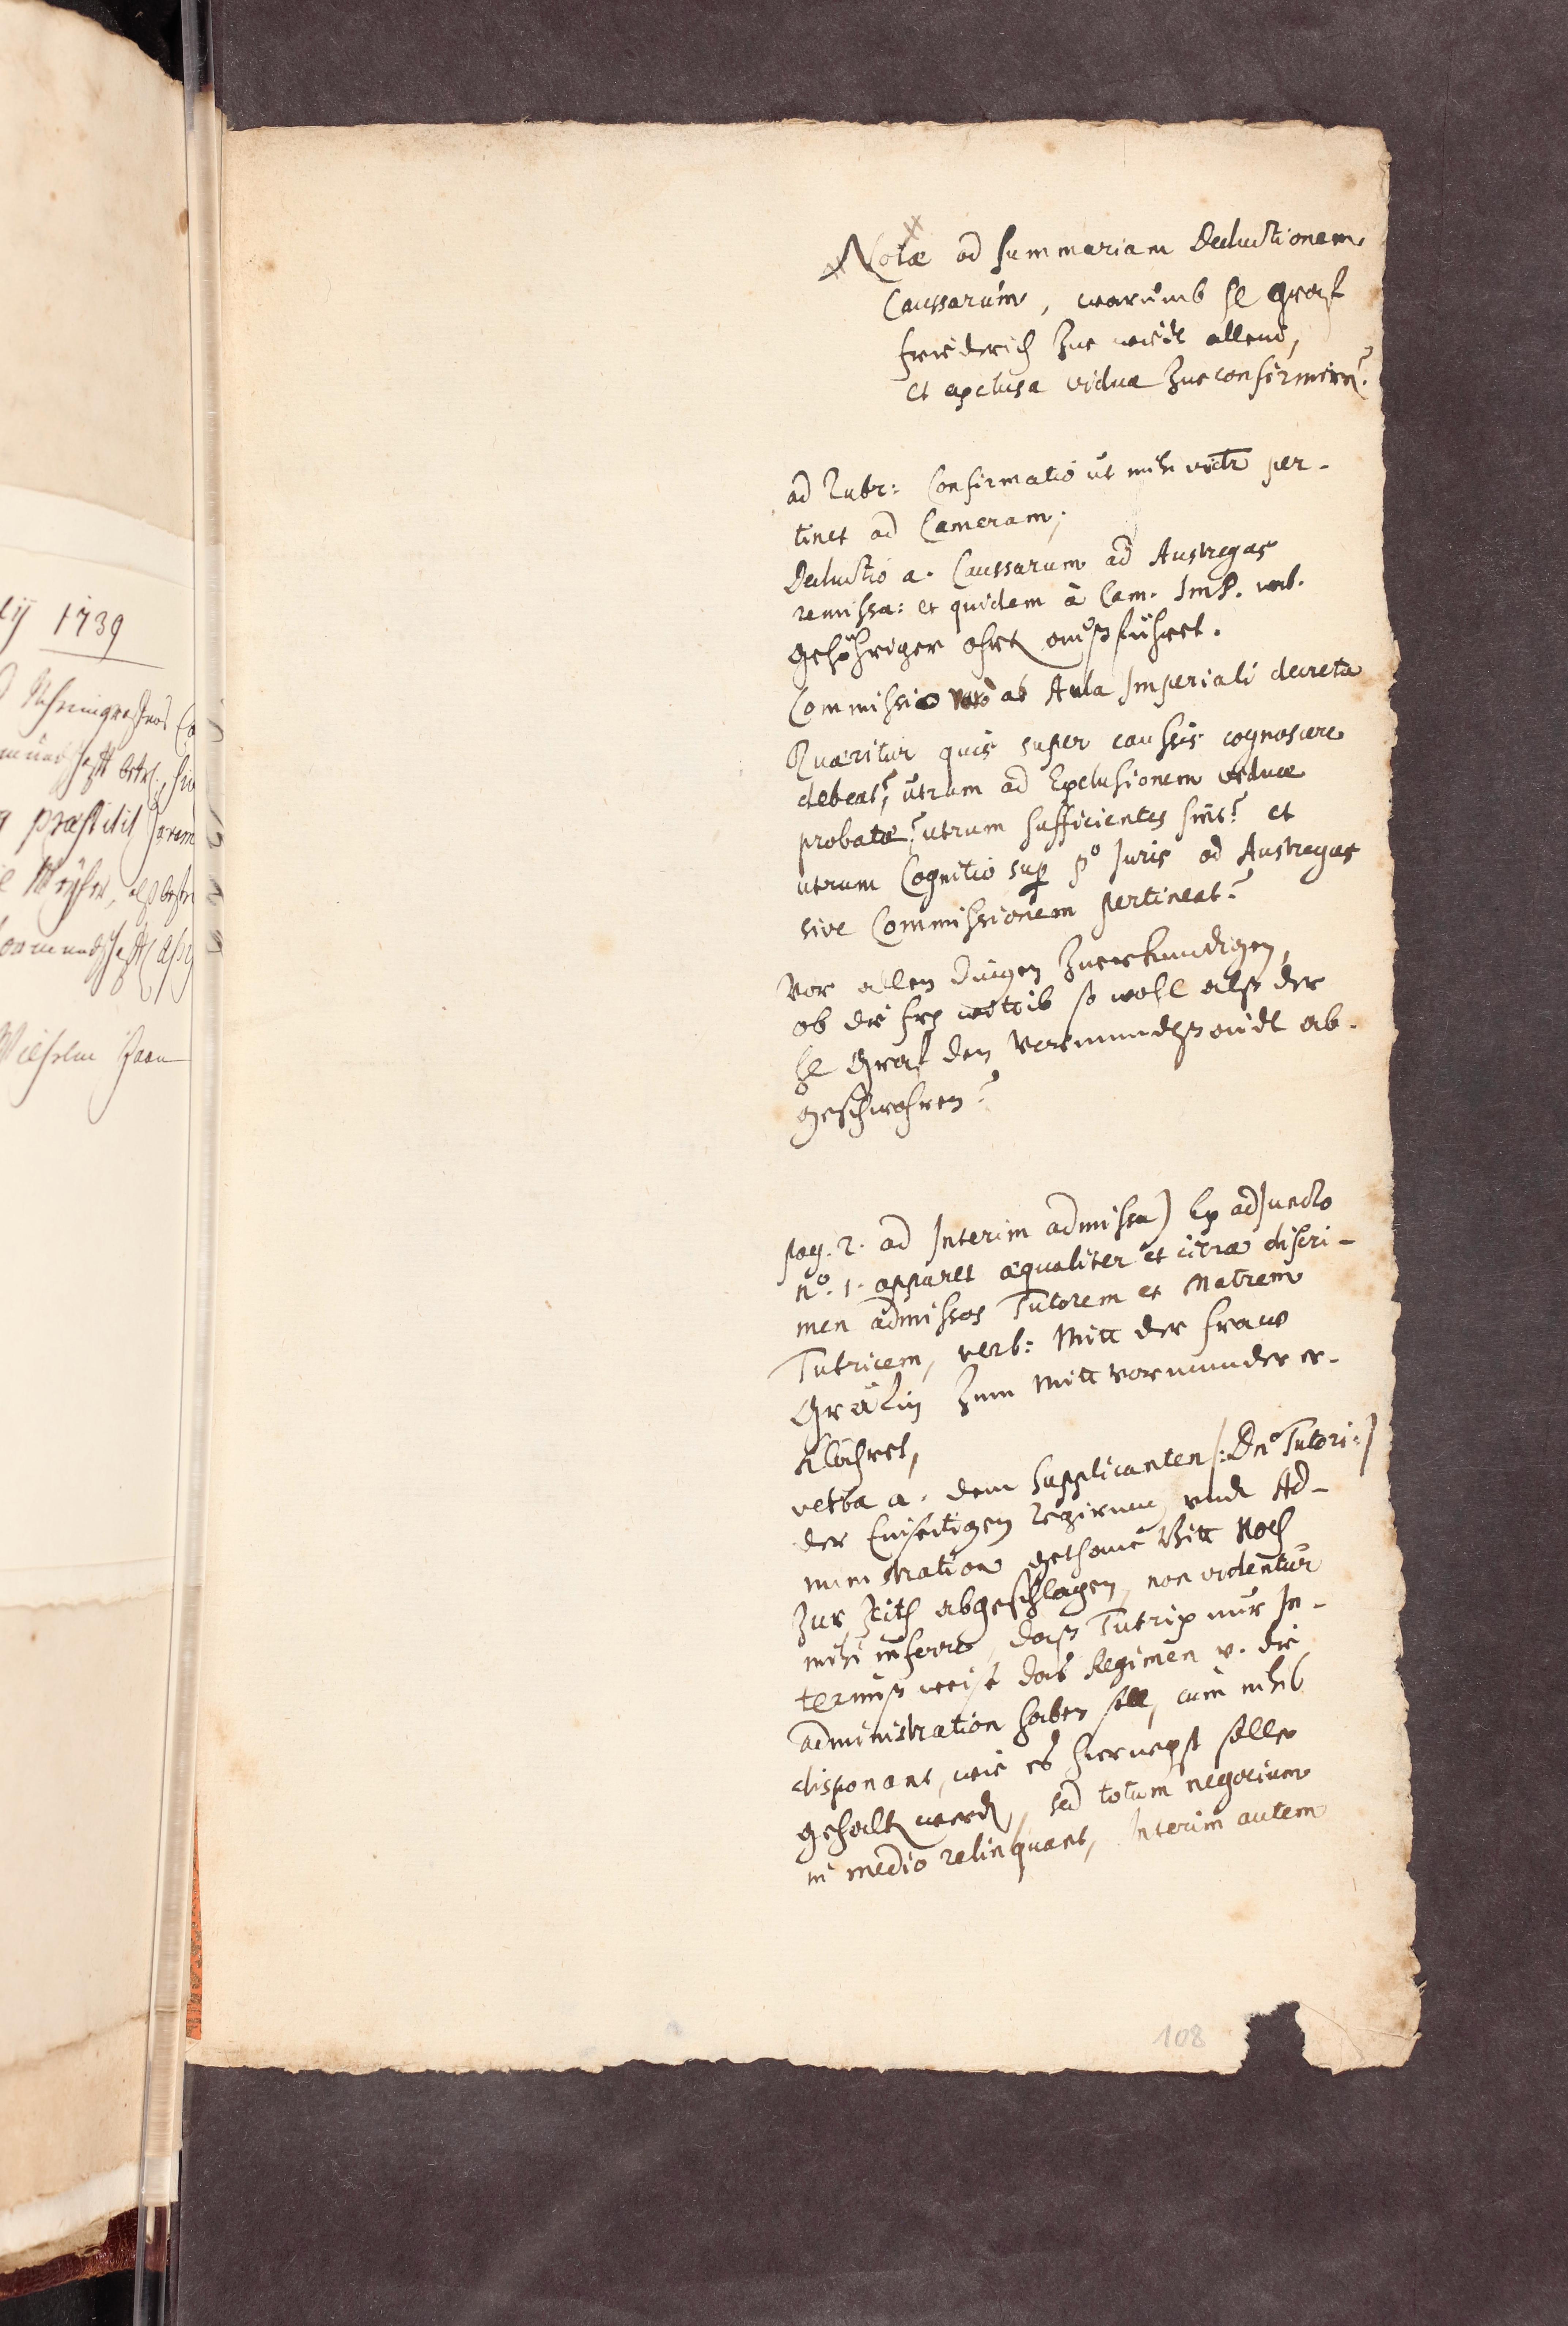 Notæ ad summariam Deductionem
Caussarum, warumb he graf
friederich zue wiedt allein,
et exclusa vidua zue confirmirn?
ad Rubr: Confirmatio ut mihi videtr per-
tinet ad Cameram;
Deductio a. Caussarum ad Austregas
remissa: et quidem à Cam. Imp. verb.
gehöhriger ohrt außführet.
Commissio verò ab Aula Imperiali decreta
Quæritur quis super caussis cognoscere
debeat? utrum ad Exclusionem viduæ
probatæ? utrum sufficientes sint? et
utrum Cognitio sup po Juris ad Austregas
sive Commissionem pertineat?
Vor allen dingen zuerkundigen,
ob die fr: wittib so wohl alß der
he Graf den Vormundtß aidt ab-
geschwohren?
pag. 2. ad Interim admissa) Ex adjuncto
no. 1. apparet æqualiter et citra discri-
men admissos Tutorem et Matrem
Tutricem, verb: Mitt der fraw
Gräfin zum mitt vormunder er-
klähret,
verba a. dem Supplicanten /:Dno Tutori:/
der Einseitigen regirung undt Ad-
ministration gethane Bitt Noch
zur Zeith abgeschlagen, non videntur
mihi inferre, daß Tutrix nur In-
terimß weiß daß Regimen v. die
administration haben soll, cum nihil
disponant, wie es hiernegst solle
gehalten werden, sed totum negocium
in medio relinquant, Interim autem
108
1739
præstitit
Wilhelm